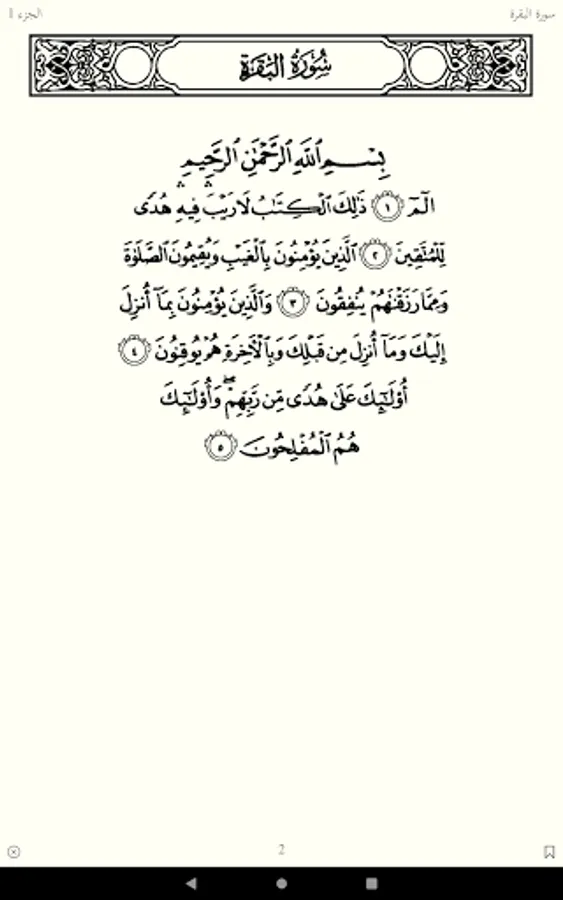 سورة البقرة
الجزء 1
سُورَةُ البَقَرَةِ
بِسْمِ ٱللَّهِ ٱلرَّحْمَٰنِ ٱلرَّحِيمِ
الٓمٓ ١ ذَٰلِكَ ٱلْكِتَٰبُ لَا رَيْبَ ۛ فِيهِ ۛ هُدًى
لِّلْمُتَّقِينَ ٢ ٱلَّذِينَ يُؤْمِنُونَ بِٱلْغَيْبِ وَيُقِيمُونَ ٱلصَّلَوٰةَ
وَمِمَّا رَزَقْنَٰهُمْ يُنفِقُونَ ٣ وَٱلَّذِينَ يُؤْمِنُونَ بِمَآ أُنزِلَ
إِلَيْكَ وَمَآ أُنزِلَ مِن قَبْلِكَ وَبِٱلْءَاخِرَةِ هُمْ يُوقِنُونَ ٤
أُو۟لَٰٓئِكَ عَلَىٰ هُدًى مِّن رَّبِّهِمْ ۖ وَأُو۟لَٰٓئِكَ
هُمُ ٱلْمُفْلِحُونَ ٥
2